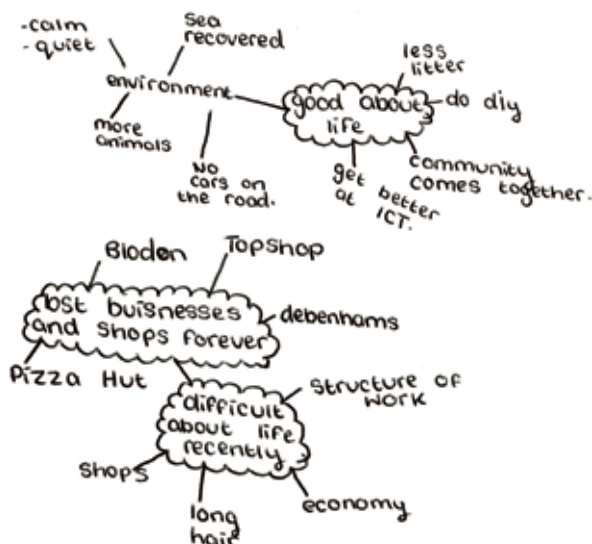 -calm
-quiet
sea
recovered
environment
more
animals
No
cars on
the road.
good about
life
less
litter
do diy
community
comes together.
get better
at ICT.
Bloden
Topshop
lost buisnesses
and shops forever
debenhams
Pizza Hut
difficult
about life
recently
structure of
work
shops
long
hair
economy